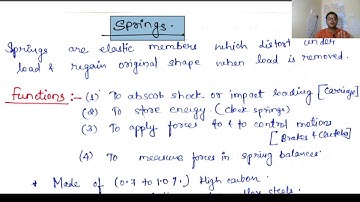 Springs.
Springs are elastic members which distort under
load & regain original shape when load is removed.
Functions :- (1) To absorb shock or impact loading [carriage]
(2) To store energy. (clock springs)
(3) To apply forces to & to control motions
[Brakes & Clutches]
(4) To measure forces in spring balances.
* Made of (0.7 to 1.0%) High carbon
steels.